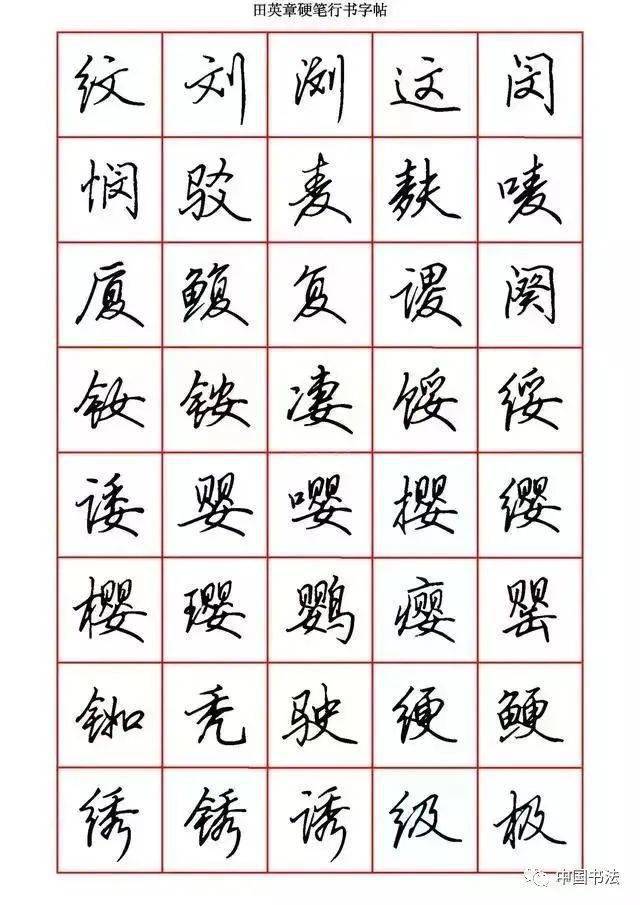 田英章硬笔行书字帖
纹刘浏这闵
悯驳麦麸唛
厦鳆复谡阕
钕铵凄馁绥
诿婴嘤撄缨
樱璎鹦瘿罂
铷秃驶绠鲠
绣锈诱级极
中国书法